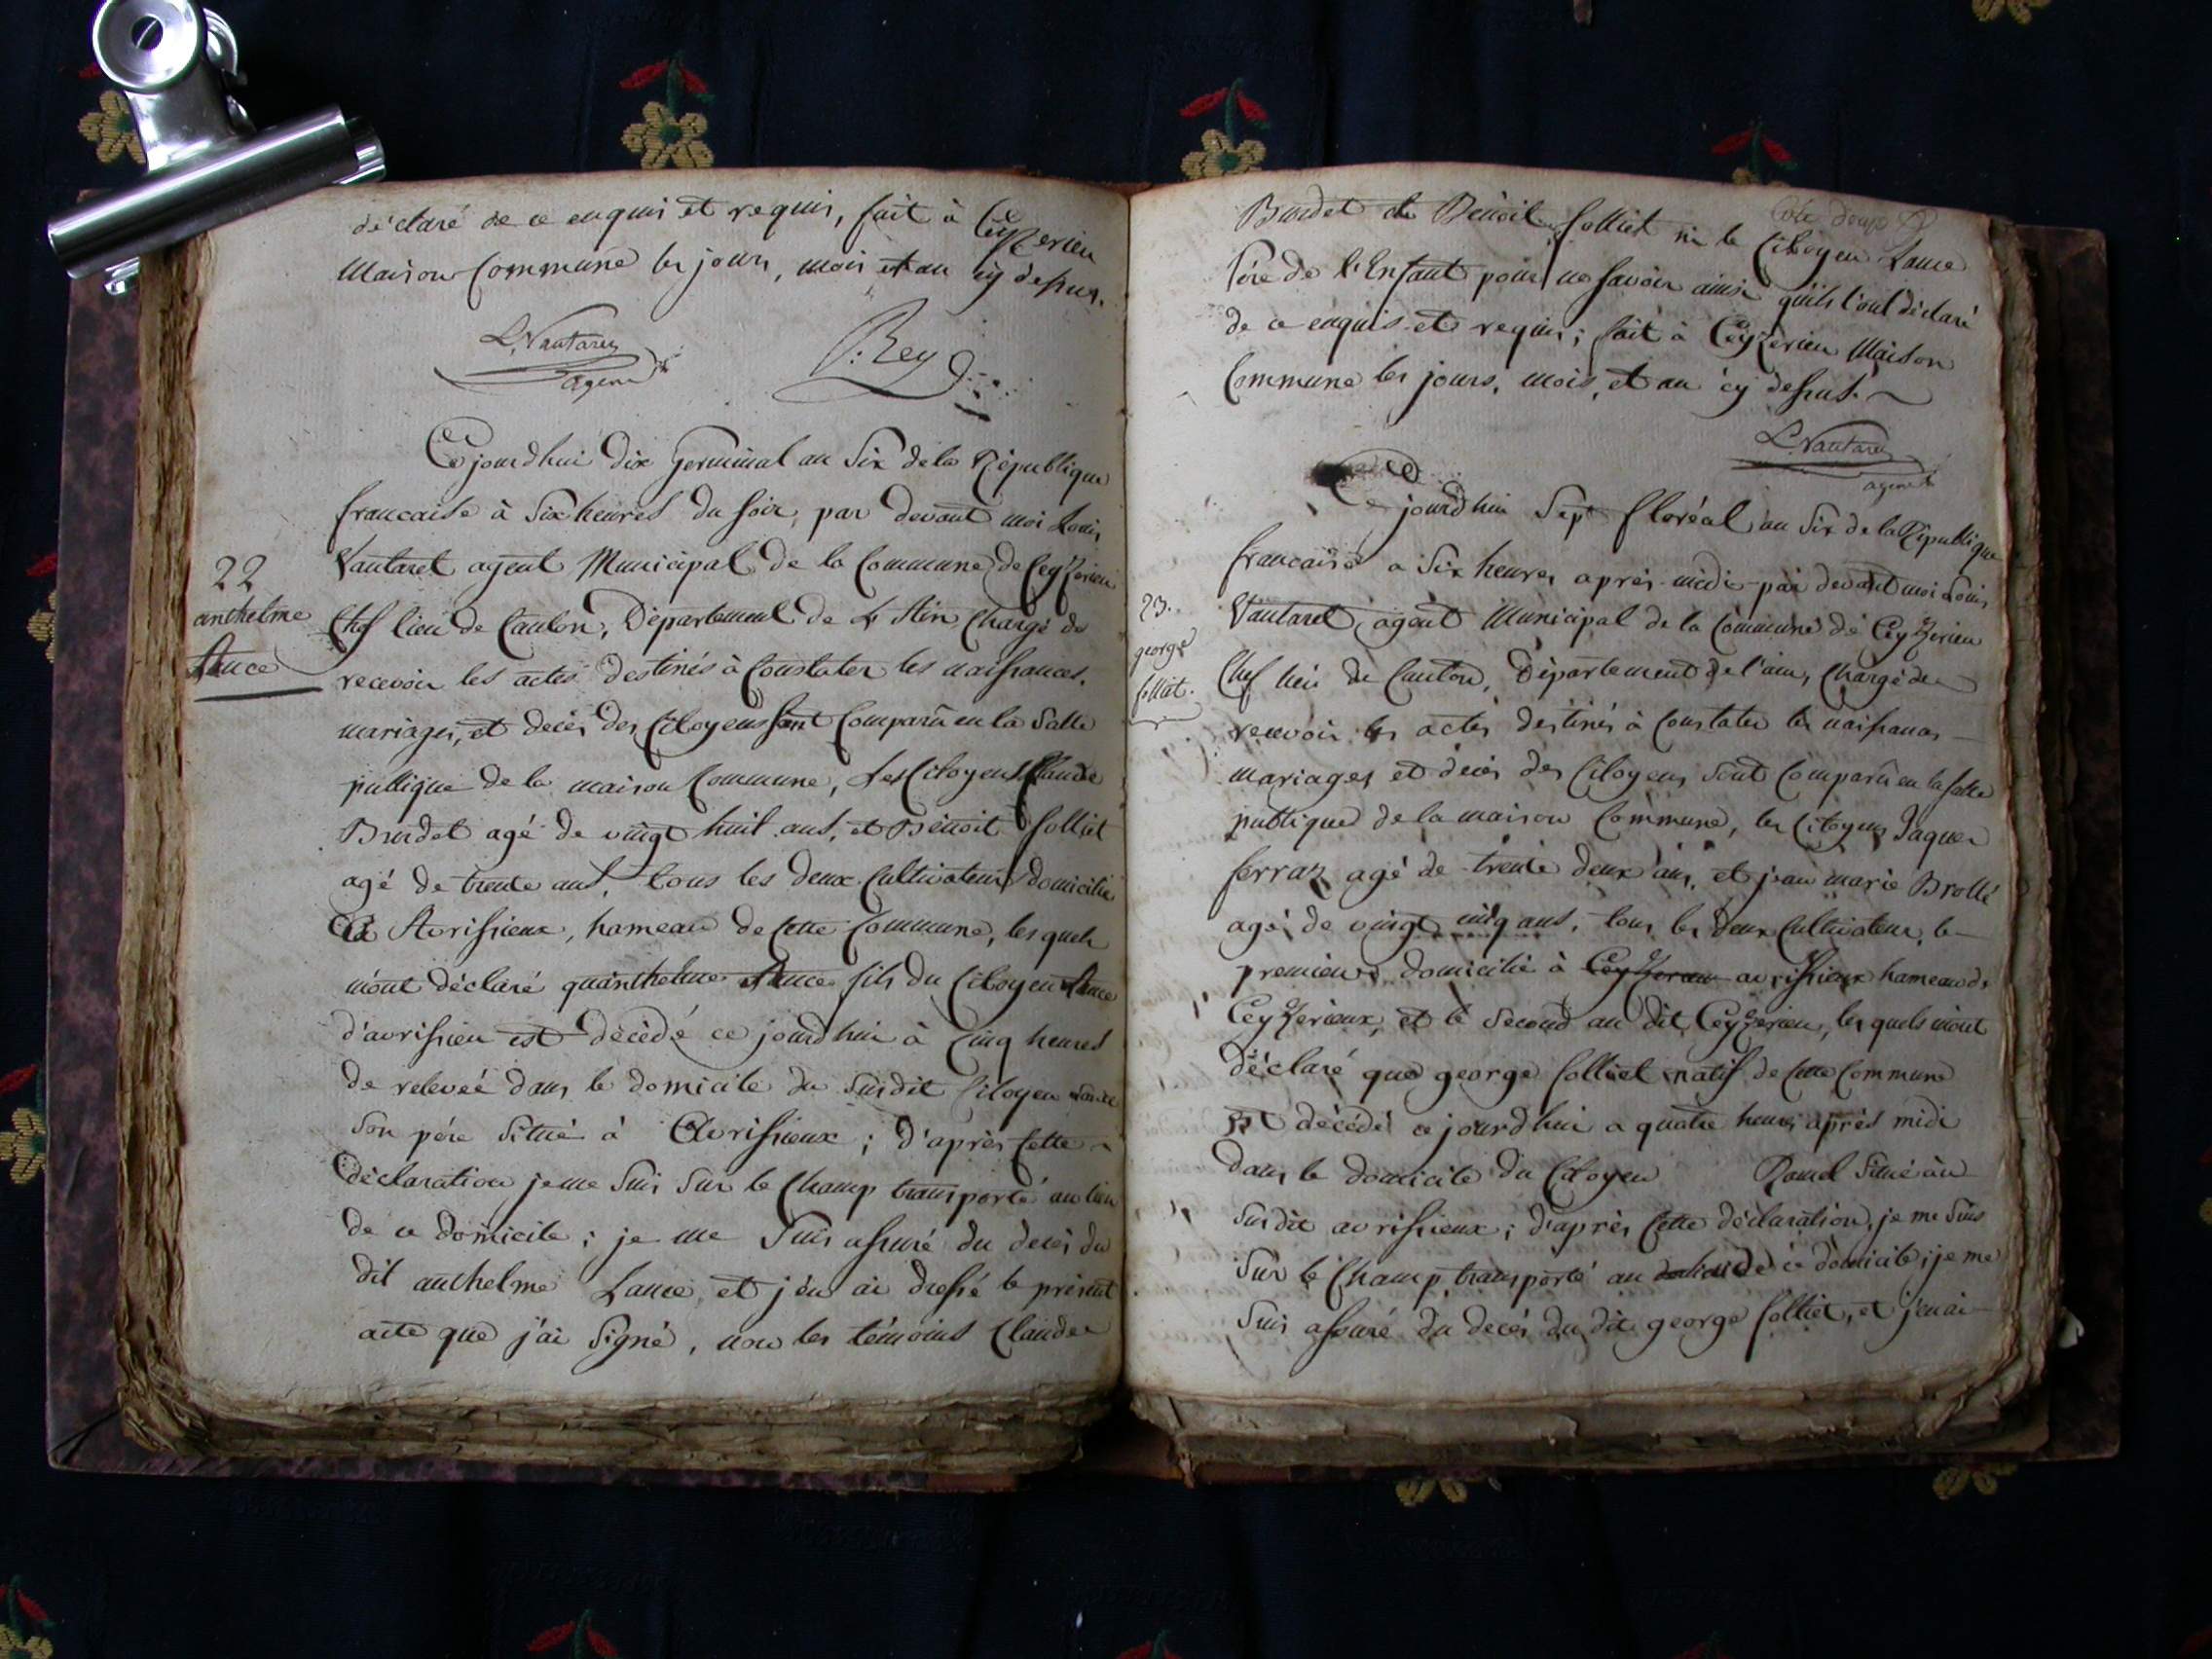 déclaré de ce enquis et requis, fait à Ceyzerieu
Maison Commune les jours, mois et an cy dessus.
L. Vautaret
agent
P. Rey
Ce jourdhui dix germinal an Six de la République
francaise à Six heures du soir, par devant moi Louis
Vautaret agent Municipal de la Commune de Ceyzerieu
22
anthelme
Lance
Chef lieu de Canton, Département de L'Ain Chargé de
recevoir les actes destinés à Constater les naissances,
mariages, et decès des Citoyens sont Comparû en la Salle
publique de la maison Commune, Les Citoyens Claude
Burdet agé de vingt huit ans, et Benoit folliet
agé de trente ans, tous les deux Cultivateurs domicilié
à Avrissieux, hameau de Cette Commune, les quels
m'ont déclaré qu'anthelme Lance fils du Citoyen Lance
d'avrissieu est décèdé ce jourdhui à Cinq heures
de relevée dans le domicile du Susdit Citoyen Lance
Son père Situé à Avrissieux ; d'après Cette
déclaration je me Suis Sur le Champ transporté au lieu
de ce domicile ; je me Suis assuré du decès du
dit anthelme Lance, et j'en ai dressé le présent
acte que j'ai Signé, non les témoins Claude
Cote douze
Burdet et Benoit folliet ni le Citoyen Lance
Père de l'Enfant pour ne savoir ainsi qu'ils l'ont déclaré
de ce enquis et requis ; fait à Ceyzerieu Maison
Commune les jours, mois, et an cy dessus.
L. Vautaret
agent
Ce jourdhui Sept floréal an Six de la République
francaise a Six heures après-midi par devant moi Louis
23.
george
folliet.
Vautaret, agent Municipal de la Commune de Ceyzerieu
Chef lieu de Canton, Département de l'ain, Chargé de
recevoir les actes destinés à Constater les naissances
mariages et décès des Citoyens sont Comparû en la Salle
publique de la maison Commune, les Citoyens Jaques
ferraz agé de trente deux ans, et jean marie Brollé
agé de vingt cinq ans, tous les deux Cultivateurs, le
premiers domicilié à Ceyzerieu avrissieux hameau de
Ceyzerieux, et le Second au dit Ceyzerieu, les quels m'ont
déclaré que george folliet natif de Cette Commune
est décédé ce jourd'hui a quatre heures après midi
dans le domicile du Citoyen Ramel Situé au
Susdit avrissieux ; d'après Cette déclaration, je me Suis
Sur le Champ transporté au de ce domicile ; je me
Suis assuré du decès du dit george folliet, et j'en ai